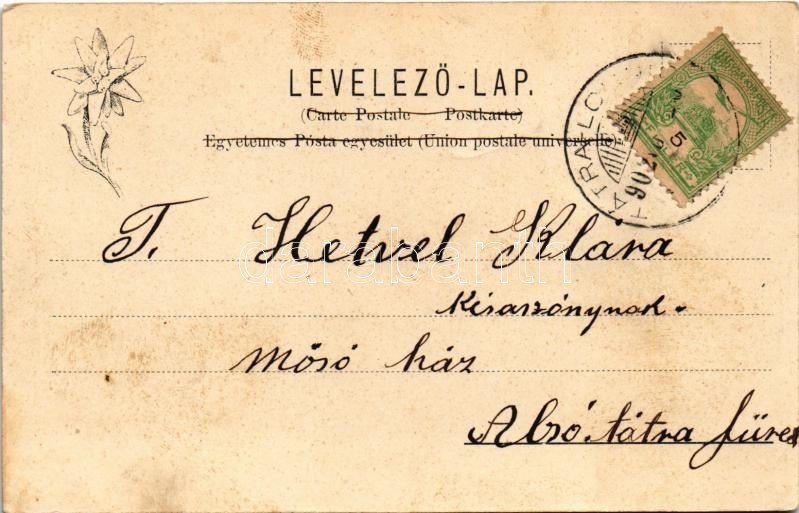 LEVELEZŐ-LAP.
(Carte Postale Postkarte)
Egyetemes Pósta egyesület (Union postale universelle)
TÁTRA-LO
906
T. Hetzel Klara
Kisaszónynak.
Mósó ház
Alsó. tátra füred
darabanth